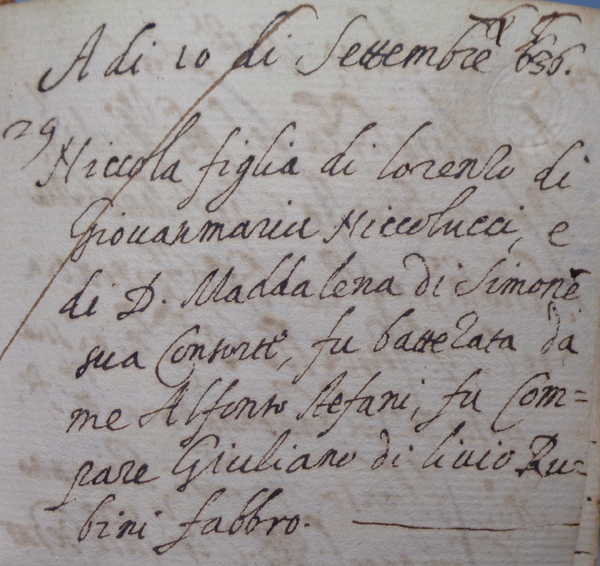 A di 10 di Settembre 1636.
29
Niccola figlia di Lorenzo di
Giovanmaria Niccolucci, e
di D. Maddalena di Simone
sua Consorte, fu battezata da
me Alfonso Stefani, fu Com=
pare Giuliano di Livio Ru=
bini fabbro.